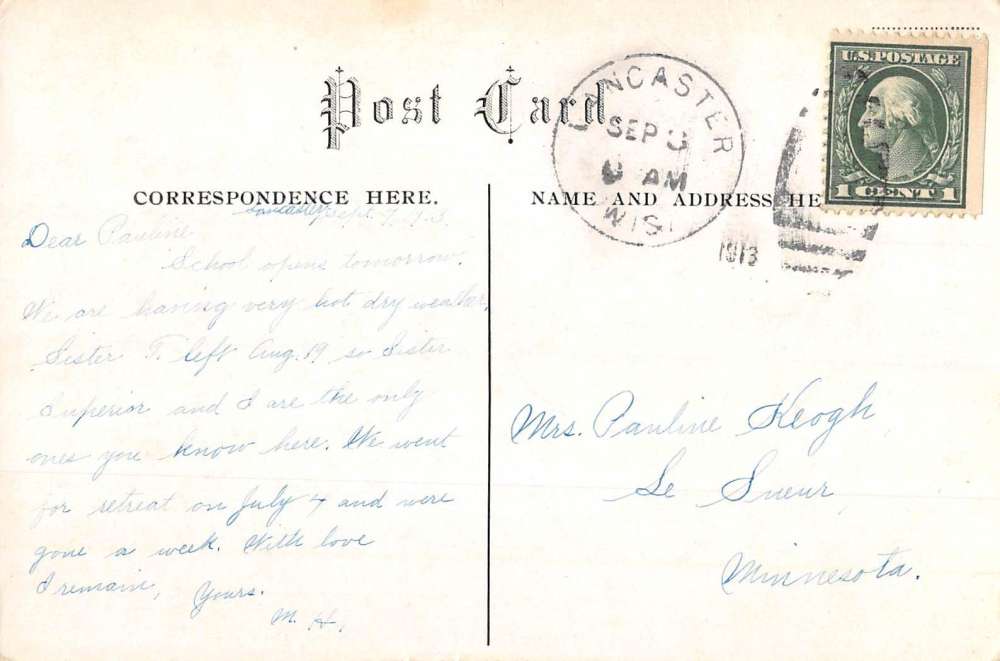 Post Card
CORRESPONDENCE HERE.
Lancaster, Sept.
Dear Pauline
School opens tomorrow.
We are having very hot dry weather.
Sister T. left Aug. 19 so Sister
Superior and I are the only
ones you know here. We went
for retreat on July 4 and were
gone a week. With love
I remain, Yours.
M. H.
NAME AND ADDRESS HE
LANCASTER
SEP 3
AM
WIS.
1913
U.S. POSTAGE
1 CENT 1
Mrs. Pauline Keogh
Le Sueur
Minnesota.